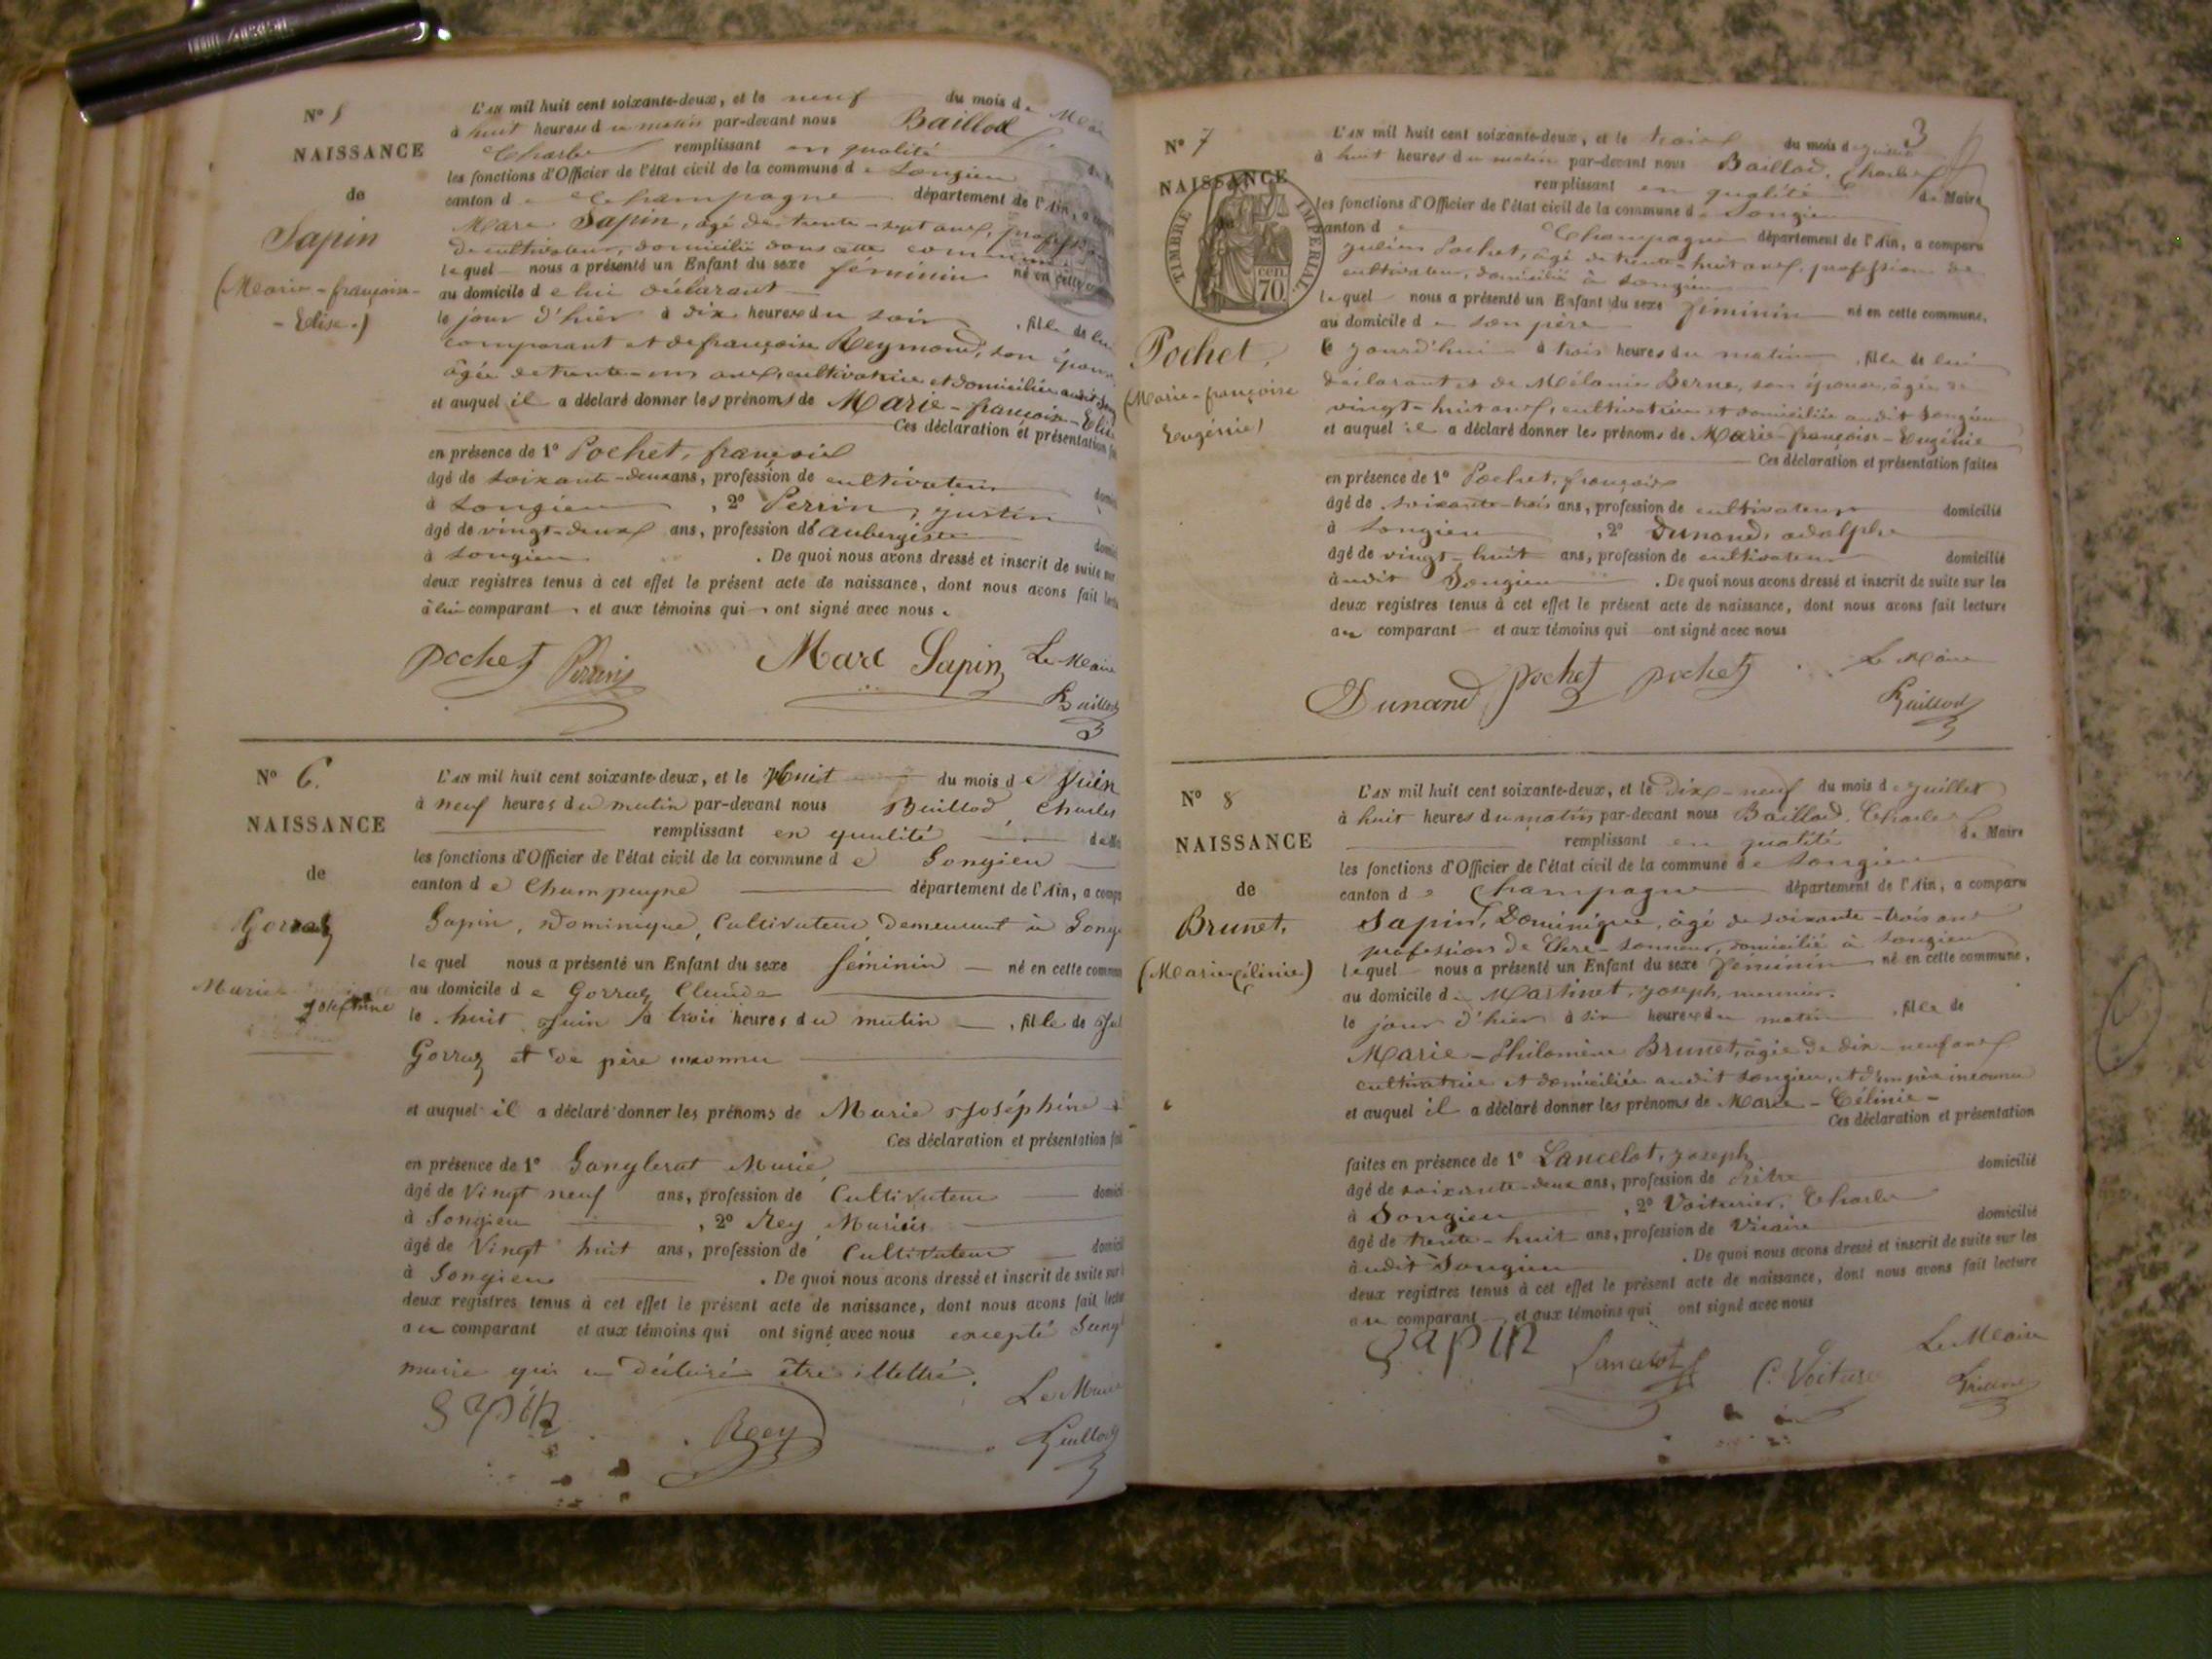 Nº 5
NAISSANCE
de
Sapin
(Marie-françoise-
-Elise.)
L'AN mil huit cent soixante-deux, et le neuf du mois de
à huit heures du matin par-devant nous Baillod
Charles remplissant en qualité
les fonctions d'Officier de l'état civil de la commune de Songieu
canton de Champagne département de l'Ain, a
Marc Sapin, âgé de trente-sept ans,
de cultivateur, domicilié dans cette commune
lequel nous a présenté un Enfant du sexe féminin né en cette
au domicile de lui déclarant
le jour d'hier à dix heures du soir , fille de lui
comparant et de françoise Reymond, son
âgée de trente-un ans, cultivatrice et domiciliée audit
et auquel il a déclaré donner les prénoms de Marie-françoise-Elise
Ces déclaration et présentation
en présence de 1º Pochet, françois
âgé de soixante-deux ans, profession de cultivateur
à Songieu , 2º Perrin, justin
âgé de vingt-deux ans, profession d'aubergiste
à Songieu . De quoi nous avons dressé et inscrit de suite sur
deux registres tenus à cet effet le présent acte de naissance, dont nous avons fait
à lui comparant et aux témoins qui ont signé avec nous.
pochet Perrin Marc Sapin Le Maire
Baillod
Nº 6.
NAISSANCE
de
Gorraz
Marie
Joséphine
L'AN mil huit cent soixante-deux, et le huit du mois de Juin
à neuf heures du matin par-devant nous Baillod, Charles
remplissant en qualité
les fonctions d'Officier de l'état civil de la commune de Songieu
canton de Champagne département de l'Ain, a
Sapin, Dominique, Cultivateur Demeurant à
lequel nous a présenté un Enfant du sexe féminin né en cette
au domicile de Gorraz Claude
le huit Juin à trois heures du matin , fille de
Gorraz et de père inconnu
et auquel il a déclaré donner les prénoms de Marie Joséphine
Ces déclaration et présentation
en présence de 1º Marie
âgé de Vingt neuf ans, profession de Cultivateur
à Songieu , 2º Rey Marius
âgé de Vingt huit ans, profession de Cultivateur
à Songieu . De quoi nous avons dressé et inscrit de suite sur
deux registres tenus à cet effet le présent acte de naissance, dont nous avons fait
au comparant et aux témoins qui ont signé avec nous excepté
marie qui a déclaré être illettré.
Sapin Rey Le Maire
Baillod
3
Nº 7
NAISSANCE
TIMBRE IMPERIAL
70 cen
Pochet,
(Marie-françoise
Eugénie)
L'AN mil huit cent soixante-deux, et le trois du mois de juillet
à huit heures du matin par-devant nous Baillod, Charles
remplissant en qualité de Maire
les fonctions d'Officier de l'état civil de la commune de Songieu
canton de Champagne département de l'Ain, a comparu
julien Pochet, âgé de trente-huit ans, profession de
cultivateur, domicilié à Songieu
lequel nous a présenté un Enfant du sexe féminin né en cette commune,
au domicile de son père
jourd'hui à trois heures du matin , fille de lui
déclarant et de Mélanie Berne, son épouse, âgée de
vingt-huit ans, cultivatrice et domiciliée audit Songieu
et auquel il a déclaré donner les prénoms de Marie-françoise-Eugénie
Ces déclaration et présentation faites
en présence de 1º Pochet, françois
âgé de soixante-trois ans, profession de cultivateur domicilié
à Songieu , 2º Dunand, adolphe
âgé de vingt-huit ans, profession de cultivateur domicilié
audit Songieu . De quoi nous avons dressé et inscrit de suite sur les
deux registres tenus à cet effet le présent acte de naissance, dont nous avons fait lecture
au comparant et aux témoins qui ont signé avec nous
Dunand pochet pochet Le Maire
Baillod
Nº 8
NAISSANCE
de
Brunet,
(Marie-Célinie)
L'AN mil huit cent soixante-deux, et le dix-neuf du mois de juillet
à huit heures du matin par-devant nous Baillod, Charles
remplissant en qualité de Maire
les fonctions d'Officier de l'état civil de la commune de Songieu
canton de Champagne département de l'Ain, a comparu
Sapin, Dominique, âgé de soixante-trois ans
profession de Clerc-sonneur, domicilié à Songieu
lequel nous a présenté un Enfant du sexe féminin né en cette commune,
au domicile de Martinet, joseph, meunier.
le jour d'hier à six heures du matin , fille de
Marie-Philomène Brunet, âgée de dix-neuf ans
cultivatrice et domiciliée audit Songieu, et d'un père inconnu
et auquel il a déclaré donner les prénoms de Marie-Célinie-
Ces déclaration et présentation
faites en présence de 1º Lancelot, joseph
âgé de soixante-deux ans, profession de Prêtre domicilié
à Songieu , 2º Voiturier, Charles
âgé de trente-huit ans, profession de Vicaire domicilié
audit Songieu . De quoi nous avons dressé et inscrit de suite sur les
deux registres tenus à cet effet le présent acte de naissance, dont nous avons fait lecture
au comparant et aux témoins qui ont signé avec nous
Sapin Lancelot C. Voiturier Le Maire
Baillod